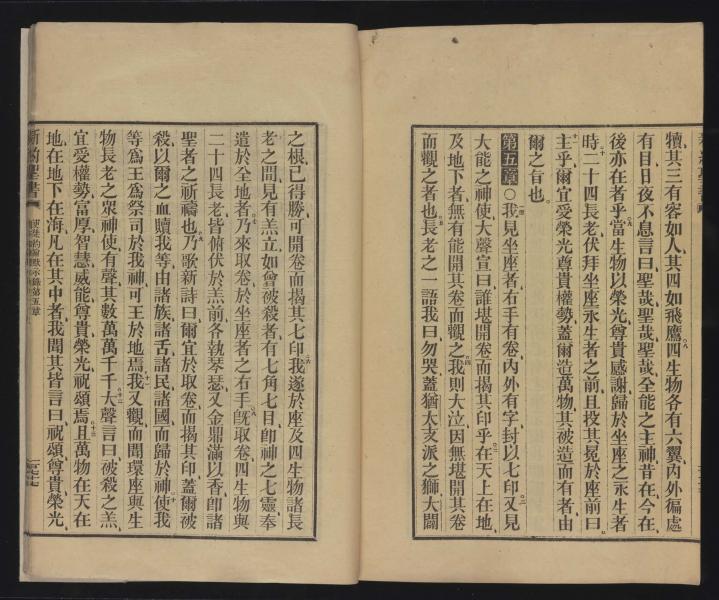 犢其三有容如人其四如飛鷹四生物各有六翼內外徧處
有目日夜不息言曰聖哉聖哉聖哉全能之主神昔在今在
後亦在者乎當生物以榮光尊貴感謝歸於坐座之永生者
時二十四長老伏拜坐座永生者之前且投其冕於座前曰
主乎爾宜受榮光尊貴權勢蓋爾造萬物其被造而有者由
爾之旨也
第五章○我見坐座者右手有卷內外有字封以七印又見
大能之神使大聲宣曰誰堪開卷而揭其印乎在天上在地
及地下者無有能開其卷而觀之我則大泣因無堪開其卷
而觀之者也長老之一語我曰勿哭蓋猶太支派之獅大闢
之根已得勝可開卷而揭其七印我遂於座及四生物諸長
老之間見有羔立如曾被殺者有七角七目即神之七靈奉
遣於全地者乃來取卷於坐座者之右手既取卷四生物與
二十四長老皆俯伏於羔前各執琴瑟又金鼎滿以香即諸
聖者之祈禱也乃歌新詩曰爾宜於取卷而揭其印蓋爾被
殺以爾之血贖我等由諸族諸舌諸民諸國而歸於神使我
等為王為祭司於我神可王於地焉我又觀而聞環座與生
物長老之眾神使有聲其數萬萬千千大聲言曰被殺之羔
宜受權勢富厚智慧威能尊貴榮光祝頌焉且萬物在天在
地在地下在海凡在其中者我聞其皆言曰祝頌尊貴榮光
新約聖書 默示錄第五章